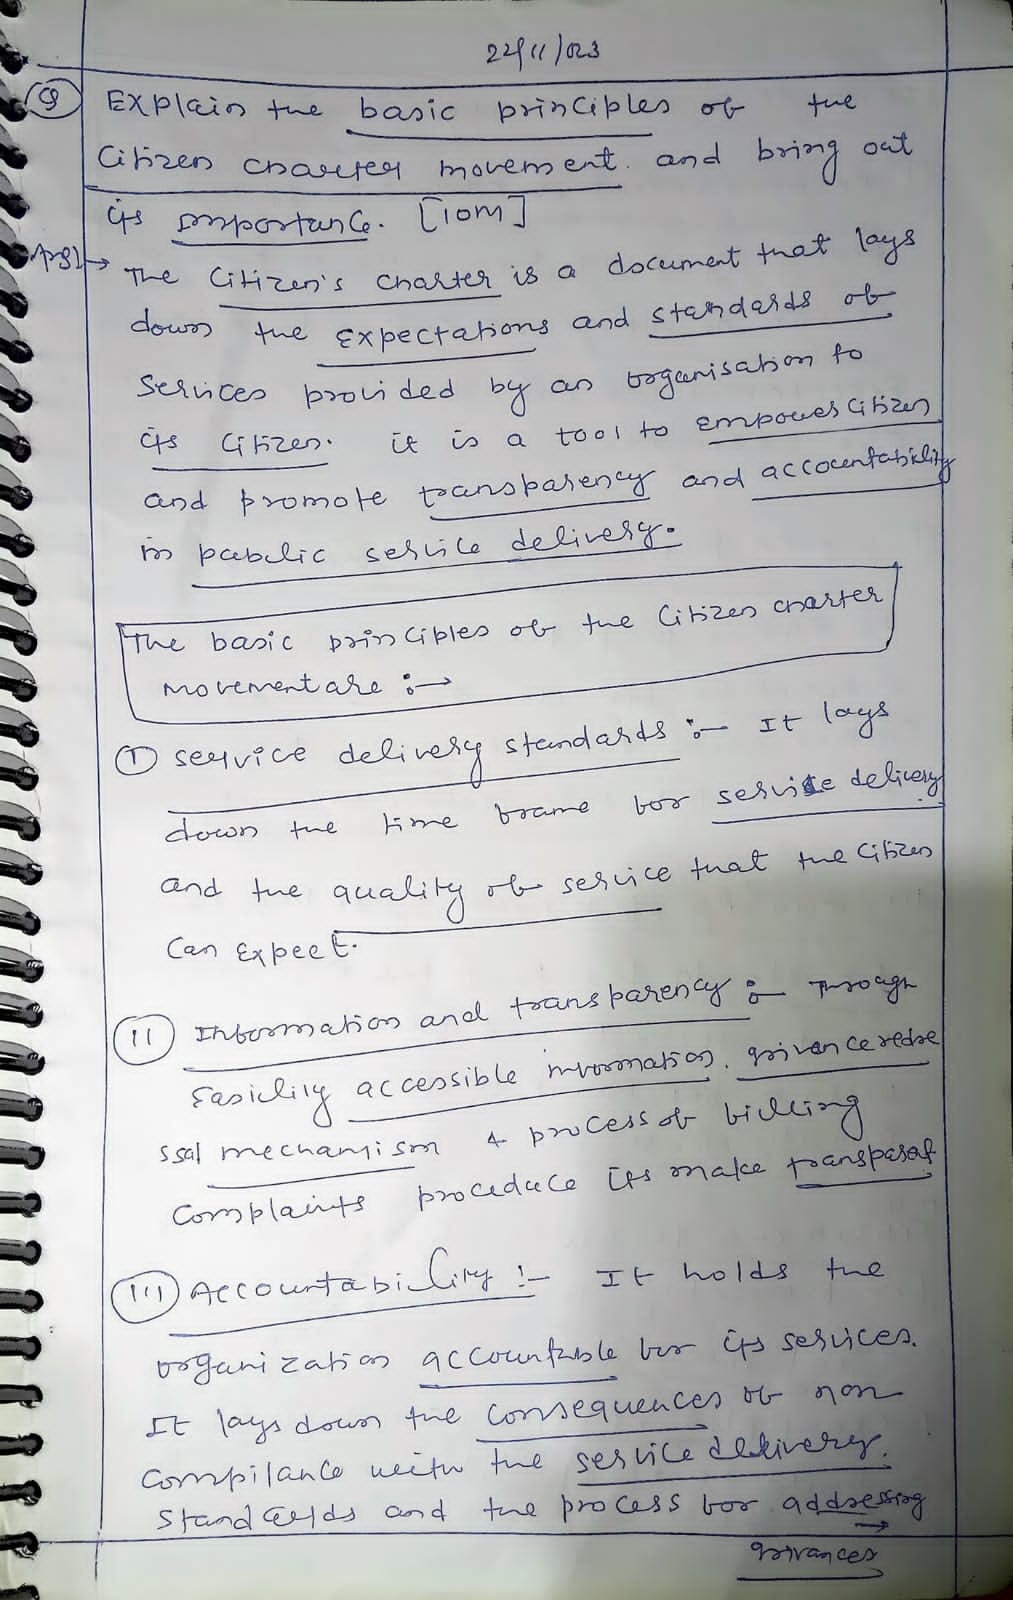 22/11/023
Q Explain the basic principles of the
Citizen charter movement. and bring out
its importance. [10M]
Ans1→ The Citizen's charter is a document that lays
down the expectations and standards of
services provided by an organisation to
its citizen. it is a tool to empower citizen
and promote transparency and accountability
in public service delivery.
The basic principles of the Citizen charter
movement are :→
I service delivery standards :- It lays
down the time frame for service delivery
and the quality of service that the citizen
can expect.
II Information and transparency :- Through
easily accessible information, grivance redre
ssal mechanism & process of filling
complaints procedure its make transparat
III Accountability :- It holds the
organization accountable for its services.
It lays down the consequences of non
compilance with the service delivery.
standards and the process for addressing
grivances